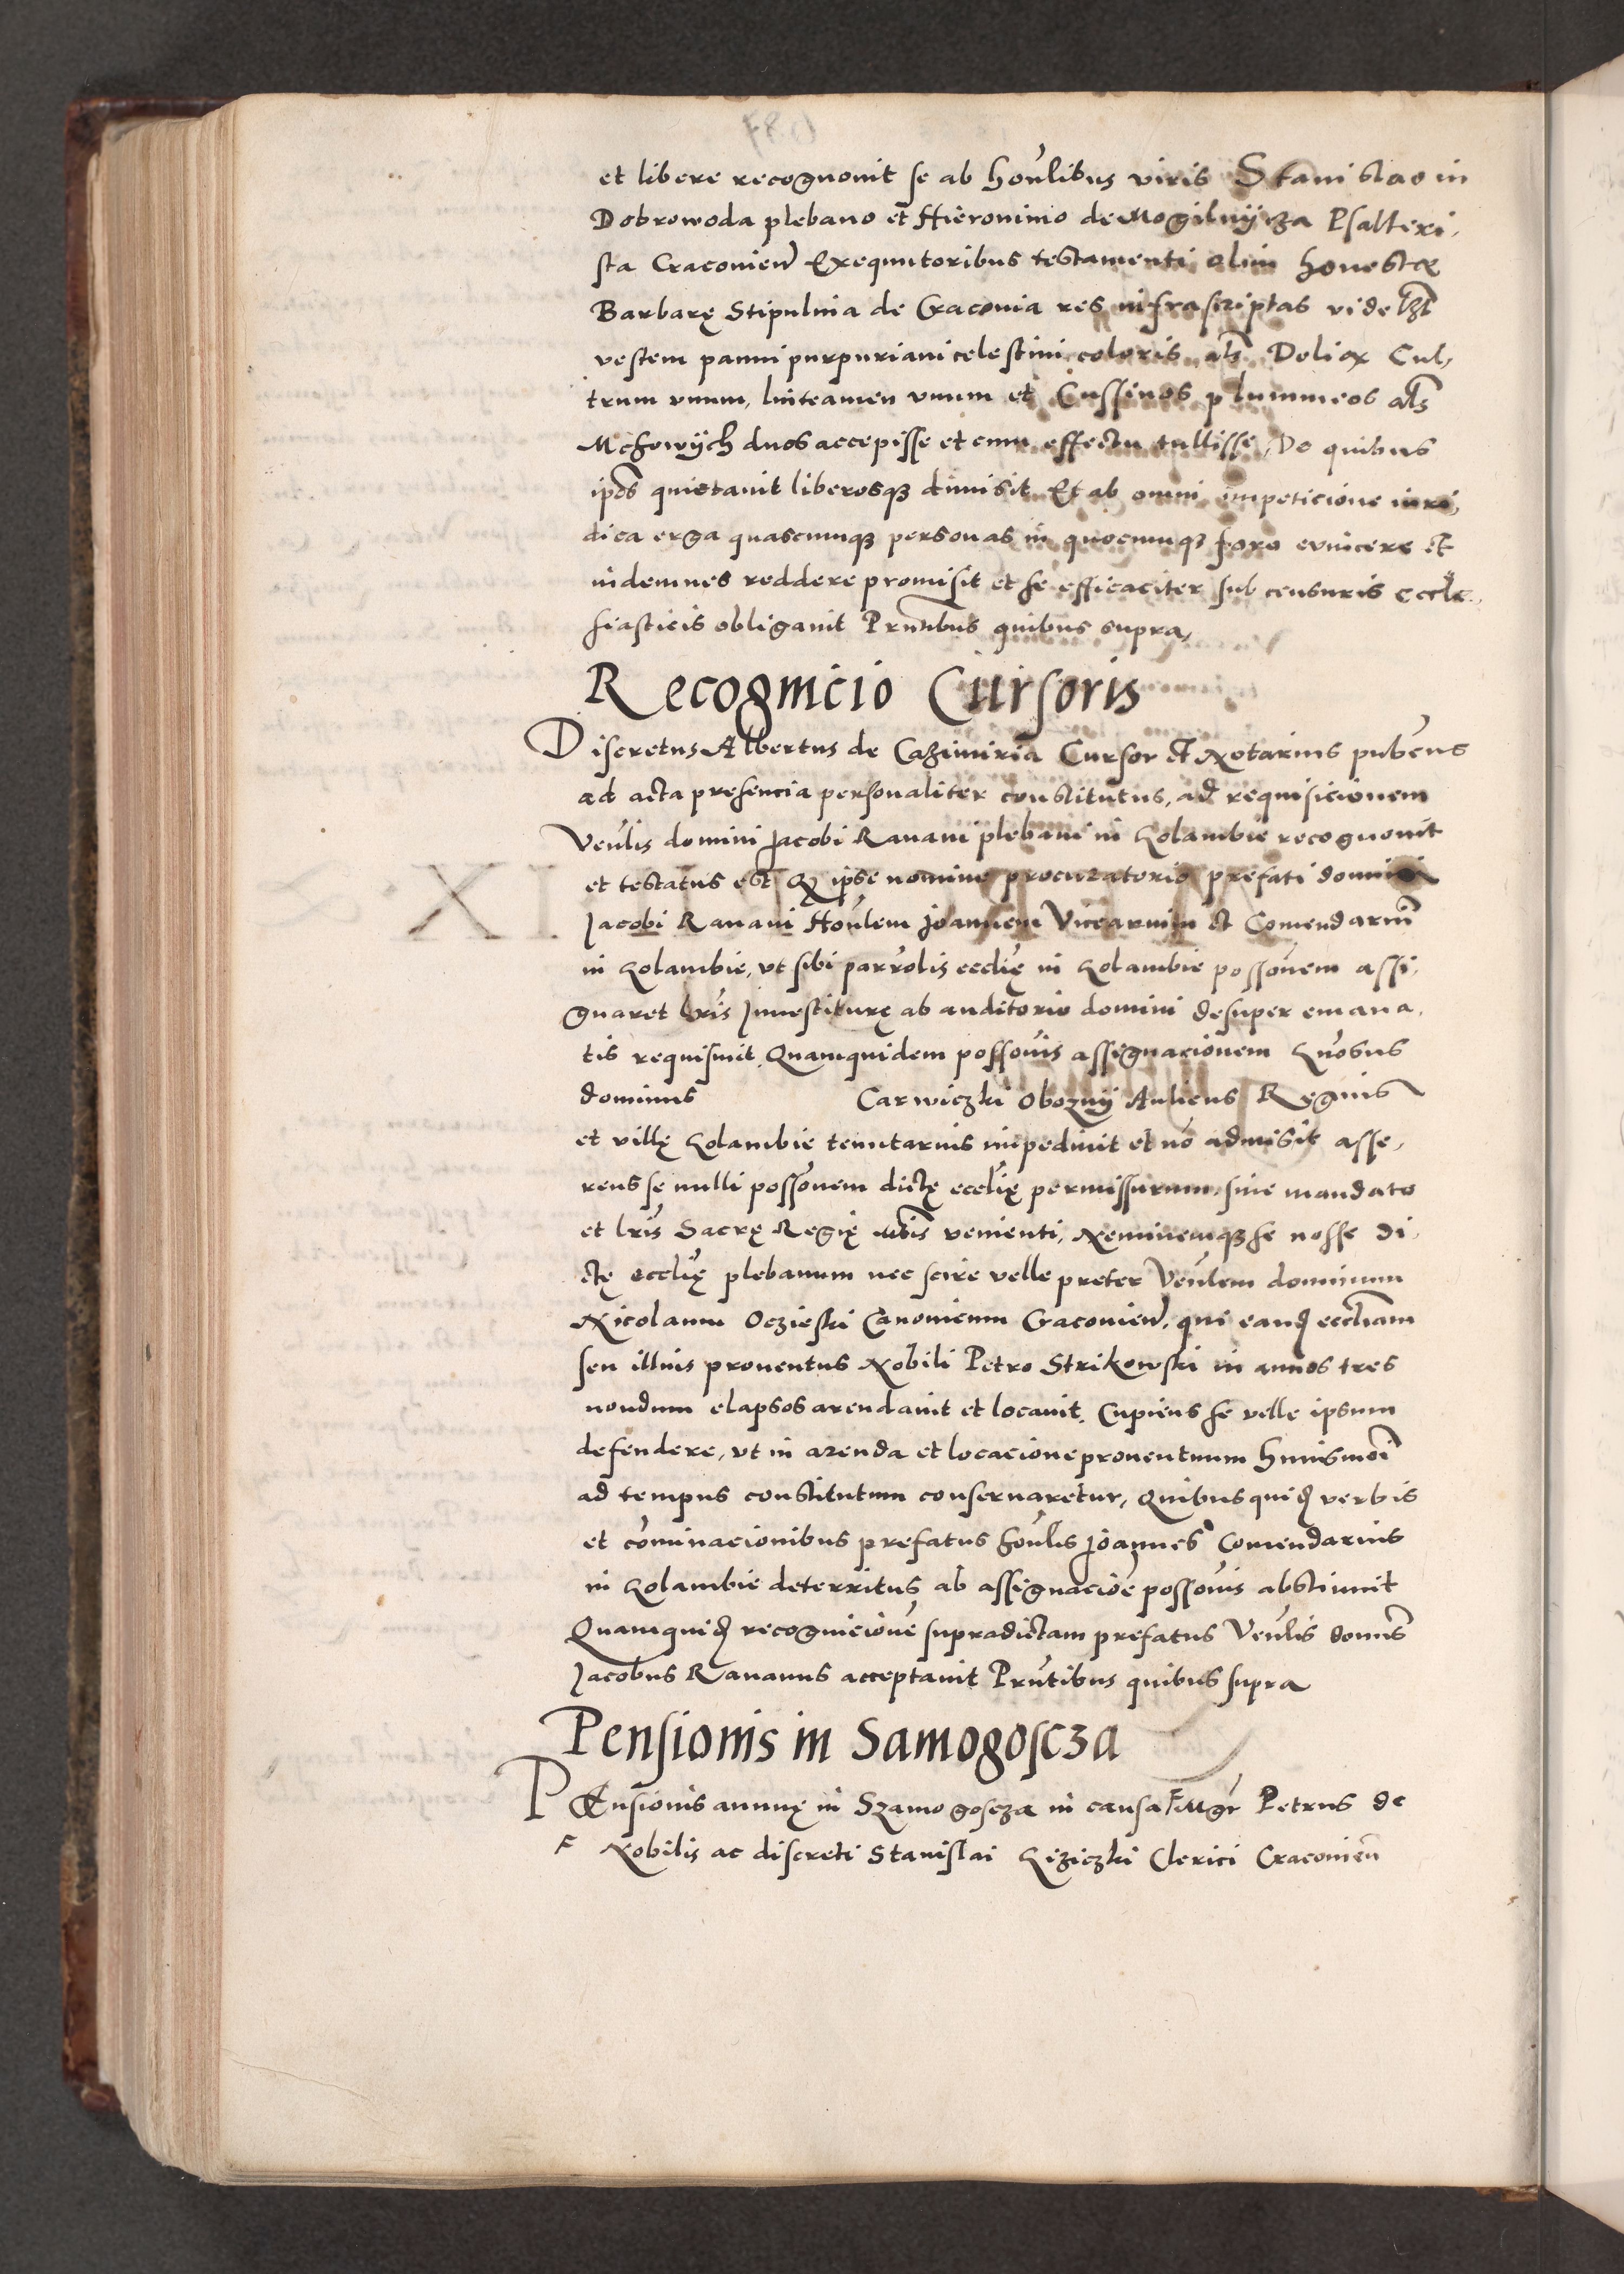 et libere recognouit se ab hon̄libus viris Stanislao in
Dobrowoda plebano et Hieronimo de Mogilnÿcza Psalteri,
sta Cracouien̄ Exequutoribus testamenti olim honestę
Barbarę Stipulnia de Cracouia res infrascriptas videlȝt
vestem panni purpuriani celestini coloris als Doliax Cul,
trum vnum, linteamen vnum et Cussinos plummeos als
Mchowÿch duos accepisse et cum effectu tullisse, De quibus
ip̄os quietauit liberosqȝ dimisit Et ab omni impeticione iuri,
dica erga quascumqȝ personas in quocumqȝ foro euincere et
indemnes reddere promisit et se efficaciter sub censuris eccle,
siasticis obligauit Prn̄tibus quibus supra,
Recognicio Cursoris
Discretus Albertus de Cazimiria Cursor et Notarius pub̄cus
ad acta presencia personaliter constitutus, ad requisicionem
Ven̄lis domini Jacobi Rauani plebani in Golambie recognouit
et testatus est Qȝ ipse nomine procuratorio prefati domini
Jacobi Rauani Hon̄lem Joannem Vicearium et Comendariū
in Golambie, vt sibi parr̄olis eccl̄ię in Golambie possōnem assi,
gnaret lr̄is Inuestiturę ab auditorio domini desuper emana,
tis requisiuit, Quamquidem possōnis assignacionem Gn̄osus
dominus Carwiczki Oboznÿ Aulicus Regius
et villę Golambie tenutarius impediuit et nō admisit asse,
rens se nulli possōnem dictę eccl̄ię permissurum, sine mandato
et lr̄is Sacrę Regię mt̄is venienti, Neminemqȝ se nosse di,
ctę eccl̄ię plebanum nec scire velle preter Ven̄lem dominum
Nicolaum Oczieski Canonicum Cracouien̄, qui eand̄ eccl̄iam
seu illius prouentus Nobili Petro Strikowski in annos tres
nondum elapsos arendauit et locauit, Cupiens se velle ipsum
defendere, vt in arenda et locacione prouentuum huiusmōi
ad tempus constitutum conseruaretur, Quibusquid̄ verbis
et cōminacionibus prefatus hon̄lis Joannes Comendarius
in Golambie deterritus, ab assignaciōe possōnis abstinuit
Quamquid̄ recognicionē supradictam prefatus Ven̄lis domn̄s
Jacobus Rauanus acceptauit Prn̄tibus quibus supra
Pensionis in Samogoscza
PEnsionis annuę in Szamogoscza in causa F Mgr̄ Petrus de
F Nobilis ac discreti Stanislai Giziczki Clerici Cracouien̄